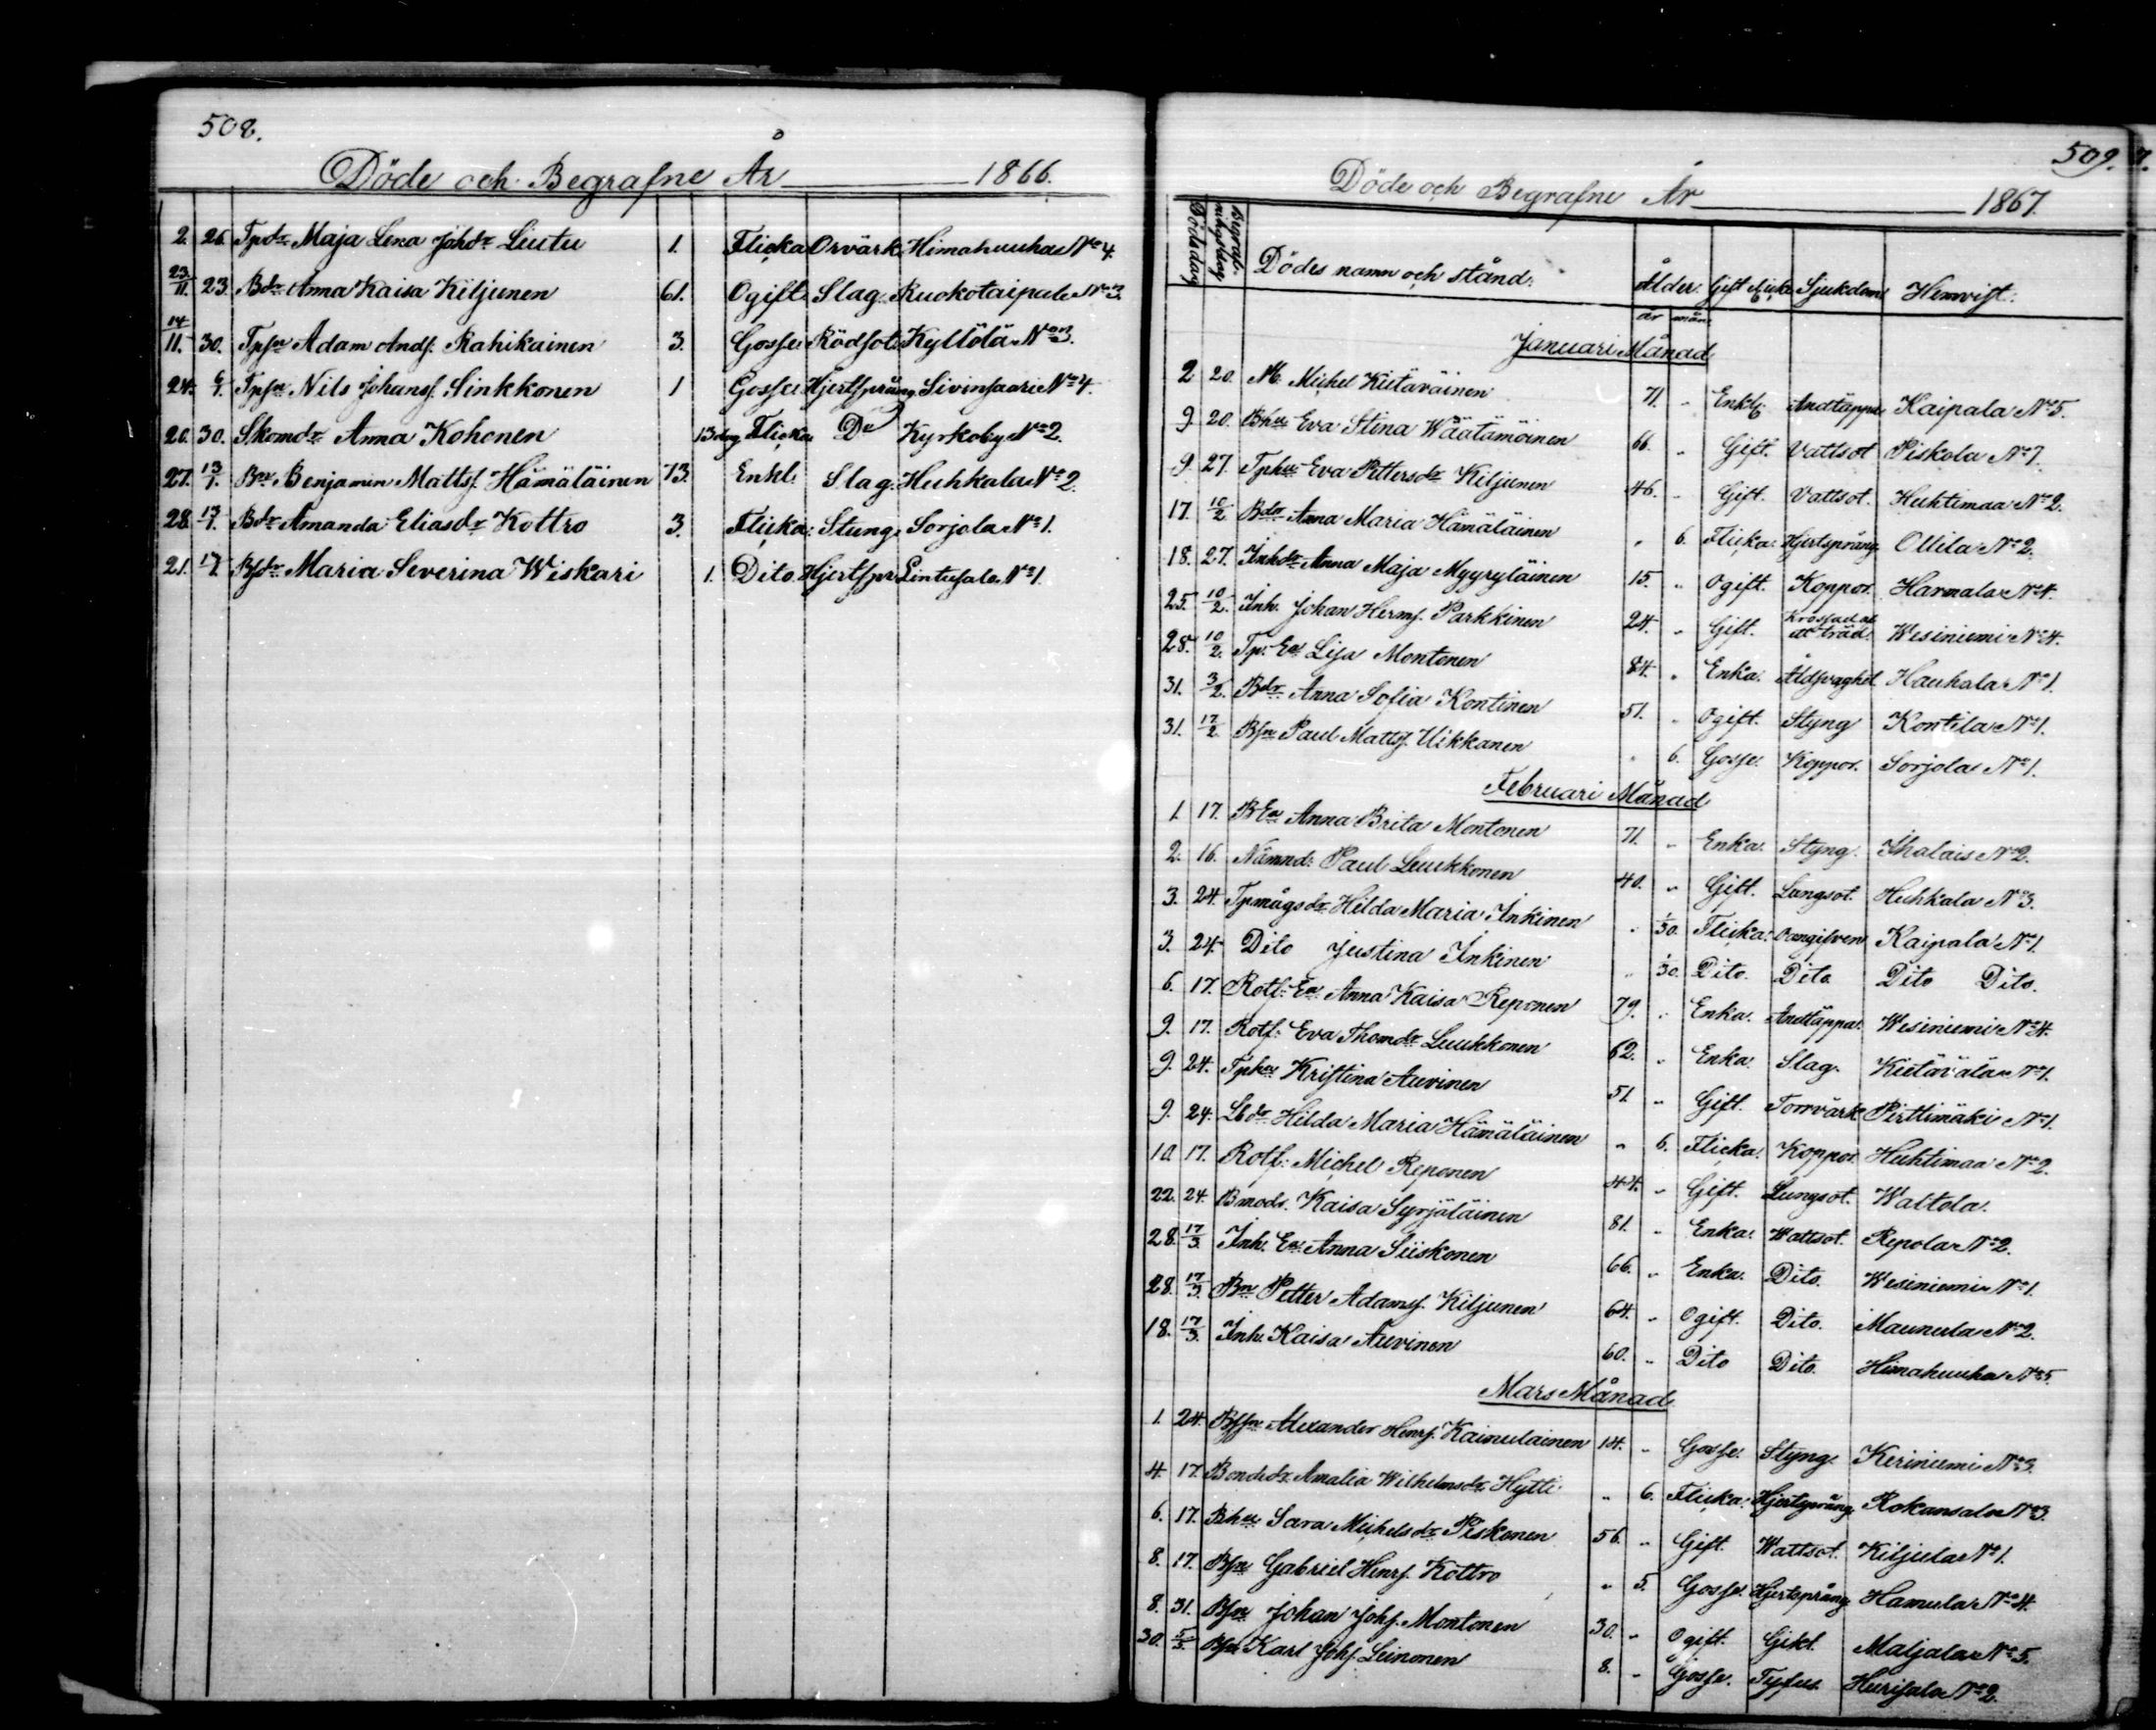 508.
Döde och Begrafne År 1866.
2. 26. Tpdr Maja Lena Johdr Liutu 1. Flicka Orvärk Himahuuha No 4.
23/11. 23. Bdr Anna Kaisa Kiljunen 61. Ogift Slag. Ruokotaipale No 3.
14/11. 30. Tpsn Adam Ands. Rahikainen 3. Gosse Rödsot. Kyllölä No 3.
24. 6/1. Tpsn Nils Johans. Sinkkonen 1 Gosse Hjertsprång Sivinsaari No 4.
20. 30. Skomdr Anna Kohonen 13 dag. Flicka Do Kyrkoby No 2.
27. 13/1. Bn Benjamin Matts. Hämäläinen 73. Enkl. Slag. Huhkala No 2.
28. 13/1. Bdr Amanda Eliasdr Kottro 3. Flicka. Stung. Sorjola No 1.
21. 17/1. Bsdr Maria Severina Wiskari 1. Dito. Hjertspr. Lintusalo No 1.
509.
Döde och Begrafne År 1867.
Dödsdag Begrafningsdag Dödes namn och stånd. Ålder. år mån. Gift Ogift Sjukdom Hemvist.
Januari Månad
2 20. M. Michel Kiitäväinen 71. " Enkl. Andtäppa Kaipala No 5.
9 20. Bhu Eva Stina Wäätämöinen 66. " Gift. Vattsot Piskola No 7.
9. 27. Tphu Eva Pettersdr Kiljunen 46. " Gift. Vattsot. Huhtimaa No 2.
17. 10/2 Bdr Anna Maria Hämäläinen " 6. Flicka. Hjertsprång Ollila No 2.
18. 27. Inhdr Anna Maja Myyryläinen 15. " Ogift. Koppor. Harmala No 4.
25. 10/2. Inh. Johan Herms. Parkkinen 24. " Gift. Krossad af ett träd. Wesiniemi No 4.
28. 10/2. Tp. Ea Lisa Montonen 84. " Enka. Åldsvaghet Haukala No 1.
31. 3/2. Bdr Anna Sofia Kontinen 51. " Ogift. Styng Kontila No 1.
31. 17/2. Bsn Paul Matts. Ukkanen " 6. Gosse. Koppor. Sorjola No 1.
Februari Månad
1. 17. BEa Anna Brita Montonen 71. " Enka. Styng. Ihalais No 2.
2. 16. Nämnd. Paul Luukkonen 40. " Gift. Lungsot. Huhkala No 3.
3. 24. Tpmågsdr Hilda Maria Inkinen " 1/30. Flicka. Oangifven Kaipala No 1.
3. 24. Dito Justina Inkinen " 1/30. Dito. Dito. Dito Dito.
6. 17. Rotf. Ea Anna Kaisa Reponen 79. " Enka. Andtäppa. Wesiniemi No 4.
9. 17. Rotf. Eva Thomdr Luukkonen 62. " Enka Slag. Kiitävälä No 1.
9. 24. Tphu Kristina Auvinen 51. " Gift. Torrvärk Pirttimäki No 1.
9. 24. Lbdr Hilda Maria Hämäläinen " 6. Flicka. Koppor Huhtimaa No 2.
10. 17. Rotf. Michel Reponen 44. " Gift. Lungsot. Waltola.
22. 24. Bmodr. Kaisa Syrjäläinen 81. " Enka. Wattsot. Repola No 2.
28. 17/3. Inh. Ea Anna Siiskonen 66. " Enka. Dito. Wesiniemi No 1.
28. 17/3. Bn Petter Adams. Kiljunen 64. " Ogift. Dito. Maunula No 2.
18. 17/3. Inh. Kaisa Auvinen 60. " Dito Dito. Himahuuha No 5.
Mars Månad
1. 24. Bssn Alexander Henrs. Kainulainen 14. " Gosse. Styng. Keriniemi No 3.
4. 17. Bondedr Amalia Wilhelmsdr Hytti " 6. Flicka. Hjertsprång Rokansalo No 3.
6. 17. Bhu Sara Michelsdr Piskonen 56. " Gift. Wattsot. Kiljula No 1.
8. 17. Bsn Gabriel Henrs. Kottro " 5. Gosse. Hjertsprång Hamula No 4.
8. 31. Bsn Johan Johs. Montonen 30. " Ogift. Gikt. Maljala No 5.
30. 5/5. Bsn Karl Johs Leinonen 8. " Gosse. Tyfus. Hurisalo No 2.